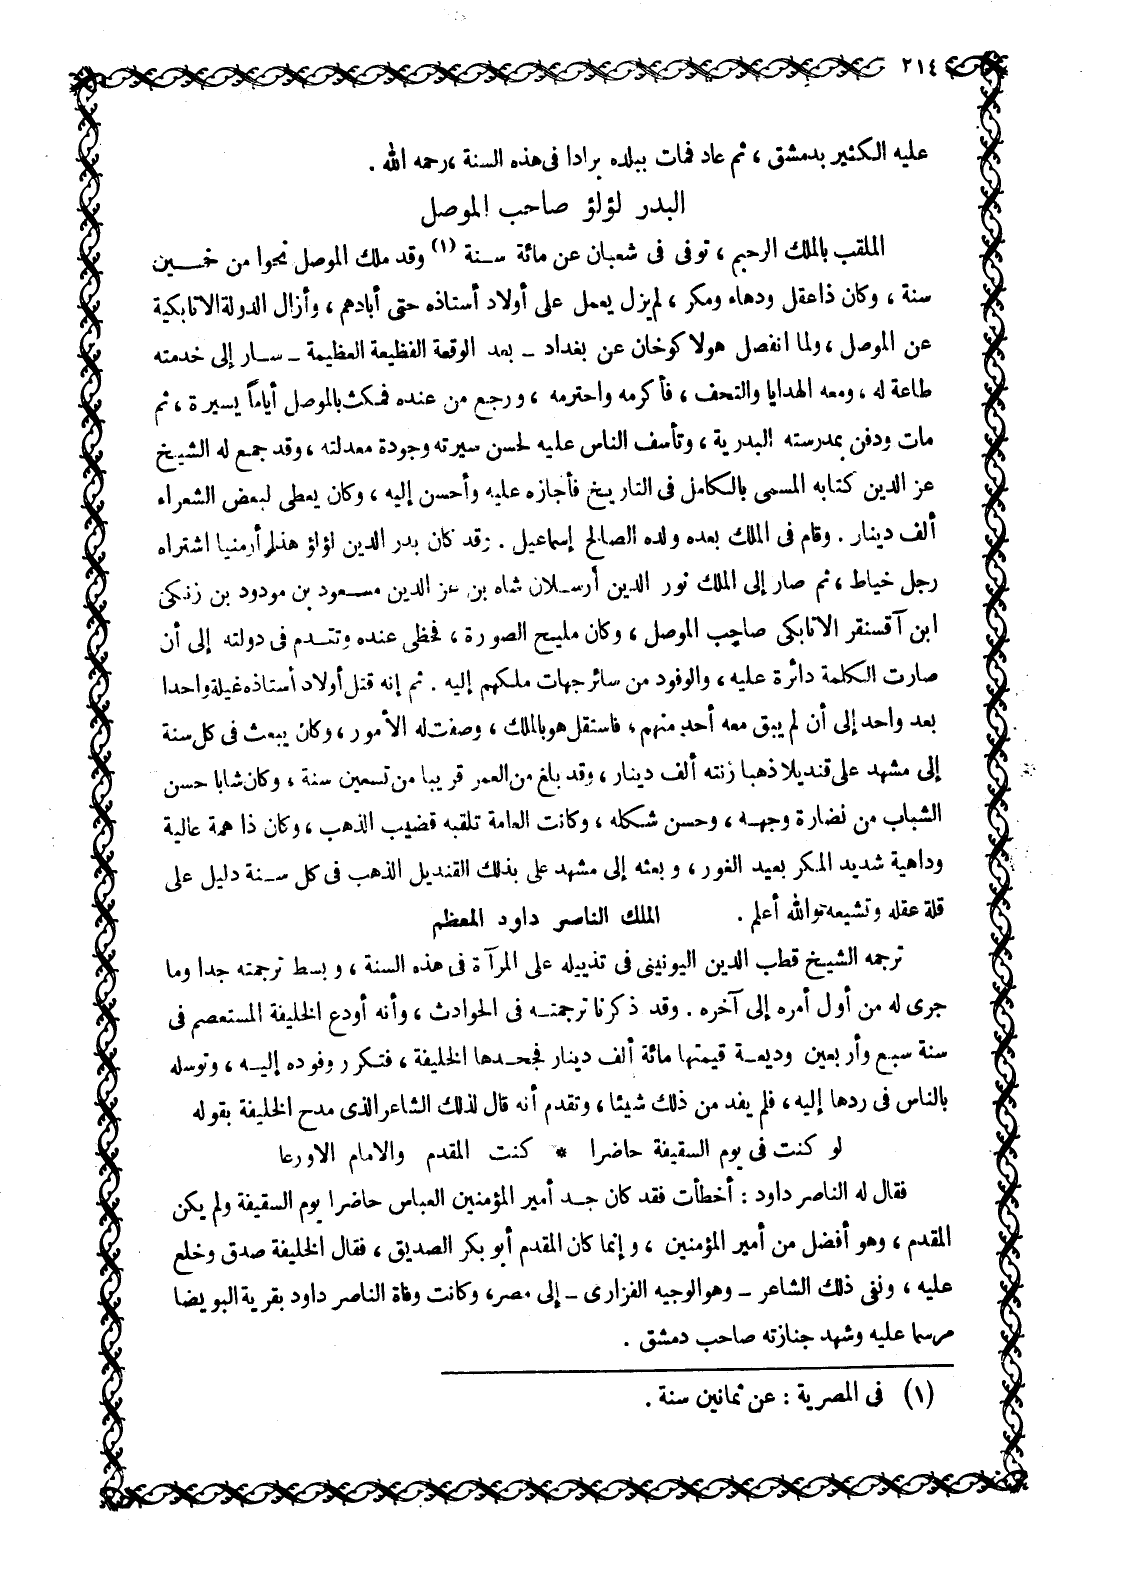 ٢١٤
عليه الكثير بدمشق ، ثم عاد فمات ببلده برادا فى هذه السنة ، رحمه الله .
البدر لؤلؤ صاحب الموصل
الملقب بالملك الرحيم ، توفى فى شعبان عن مائة سنة (١) وقد ملك الموصل نحوا من خمسين
سنة ، وكان ذا عقل ودهاء ومكر ، لم يزل يعمل على أولاد أستاذه حتى أبادهم ، وأزال الدولة الاتابكية
عن الموصل ، ولما انفصل هولاكو خان عن بغداد ـ بعد الوقعة الفظيعة العظيمة ـ سار إلى خدمته
طاعة له ، ومعه الهدايا والتحف ، فأكرمه واحترمه ، ورجع من عنده فمكث بالموصل أياماً يسيرة ، ثم
مات ودفن بمدرسته البدرية ، وتأسف الناس عليه لحسن سيرته وجودة معدلته ، وقد جمع له الشيخ
عز الدين كتابه المسمى بالكامل فى التاريخ فأجازه عليه وأحسن إليه ، وكان يعطى لبعض الشعراء
ألف دينار . وقام فى الملك بعده ولده الصالح إسماعيل . وقد كان بدر الدين لؤلؤ هذا أرمنيا اشتراه
رجل خياط ، ثم صار إلى الملك نور الدين أرسلان شاه بن عز الدين مسعود بن مودود بن زنكى
ابن آقسنقر الاتابكى صاحب الموصل ، وكان مليح الصورة ، فحظى عنده وتقدم فى دولته إلى أن
صارت الكلمة دائرة عليه ، والوفود من سائر جهات ملكهم إليه . ثم إنه قتل أولاد أستاذه غيلة واحدا
بعد واحد إلى أن لم يبق معه أحد منهم ، فاستقل هو بالملك ، وصفت له الأمور ، وكان يبعث فى كل سنة
إلى مشهد على قنديلا ذهبا زنته ألف دينار ، وقد بلغ من العمر قريبا من تسعين سنة ، وكان شابا حسن
الشباب من نضارة وجهه ، وحسن شكله ، وكانت العامة تلقبه قضيب الذهب ، وكان ذا همة عالية
وداهية شديد المكر بعيد الغور ، وبعثه إلى مشهد على بذلك القنديل الذهب فى كل سنة دليل على
قلة عقله وتشيعه والله أعلم . الملك الناصر داود المعظم
ترجمه الشيخ قطب الدين اليونينى فى تذييله على المرآة فى هذه السنة ، وبسط ترجمته جدا وما
جرى له من أول أمره إلى آخره . وقد ذكرنا ترجمته فى الحوادث ، وأنه أودع الخليفة المستعصم فى
سنة سبع وأربعين وديعة قيمتها مائة ألف دينار فجحدها الخليفة ، فتكرر وفوده إليه ، وتوسله
بالناس فى ردها إليه ، فلم يفد من ذلك شيئا ، وتقدم أنه قال لذلك الشاعر الذى مدح الخليفة بقوله
لو كنت فى يوم السقيفة حاضرا * كنت المقدم والامام الاورعا
فقال له الناصر داود : أخطأت فقد كان جد أمير المؤمنين العباس حاضرا يوم السقيفة ولم يكن
المقدم ، وهو أفضل من أمير المؤمنين ، وإنما كان المقدم أبو بكر الصديق ، فقال الخليفة صدق وخلع
عليه ، ونفى ذلك الشاعر ـ وهو الوجيه الفزارى ـ إلى مصر ، وكانت وفاة الناصر داود بقرية البويضا
مرسما عليه وشهد جنازته صاحب دمشق .
(١) فى المصرية : عن ثمانين سنة .